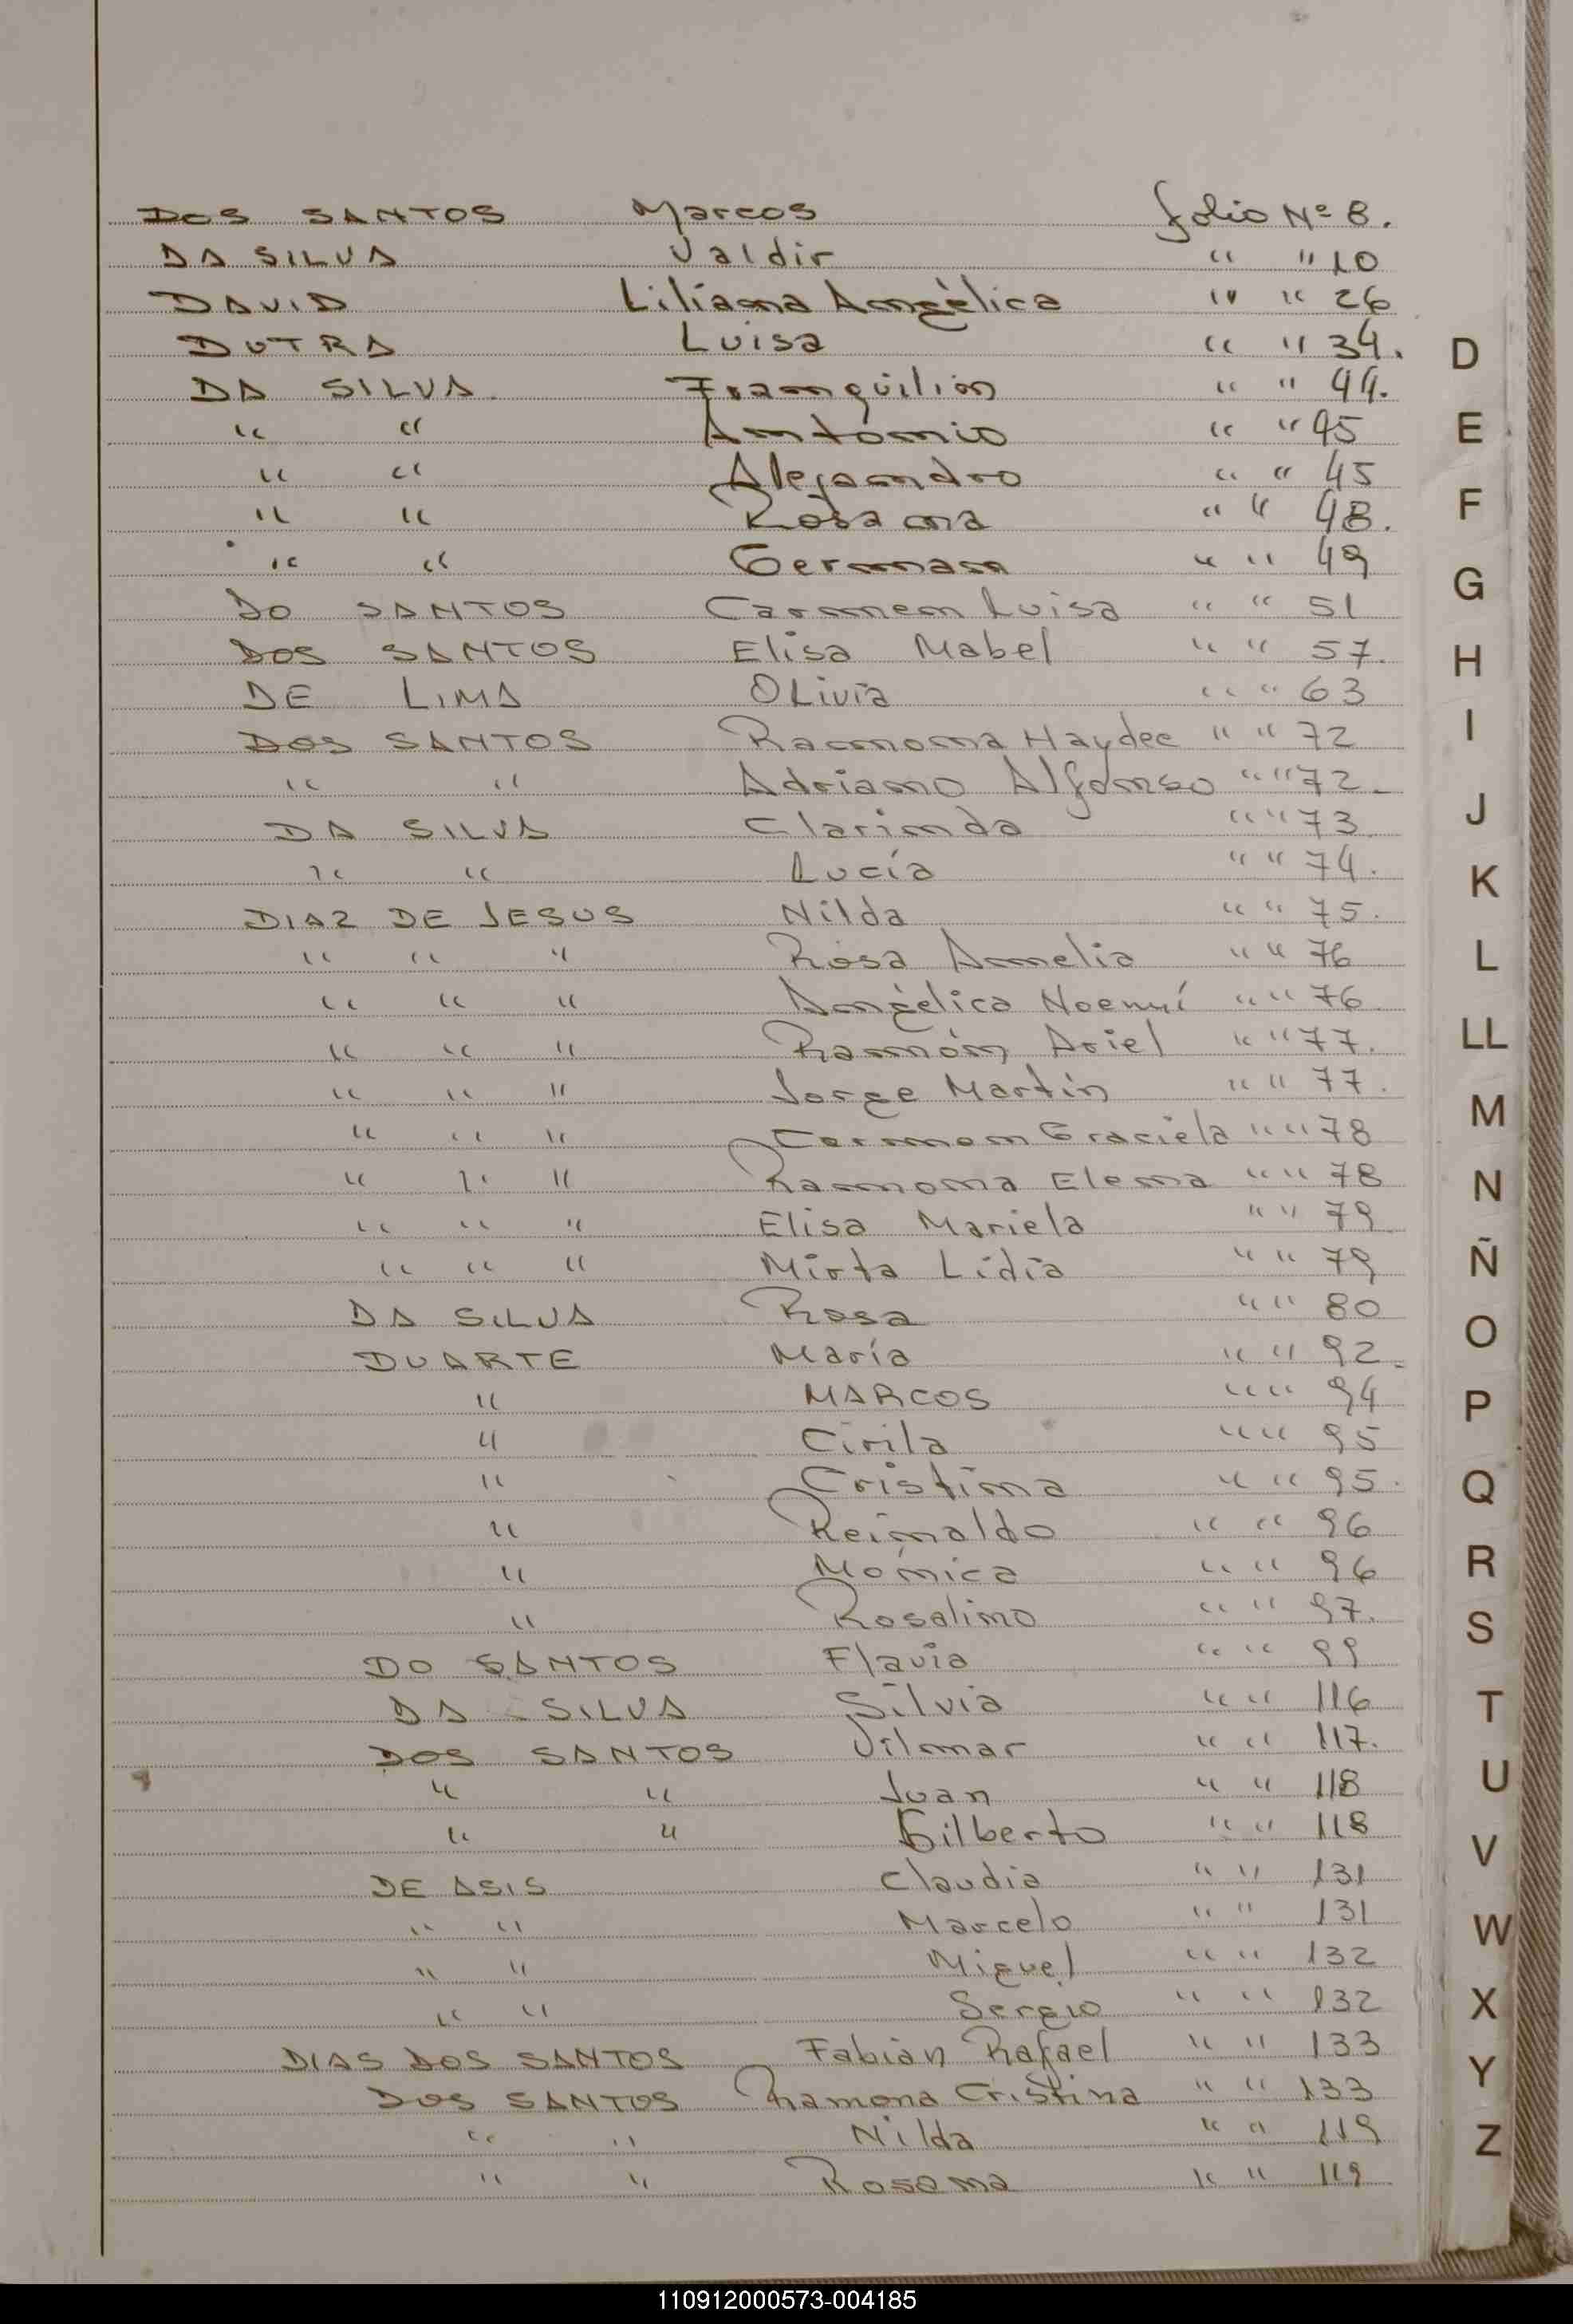 DOS SANTOS Marcos folio Nº 8.
DA SILVA Valdir " " 10
DAVID Liliana Angélica " " 26
DUTRA Luisa " " 34.
DA SILVA Franquilin " " 44.
" " Antonio " " 45
" " Alejandro " " 45
" " Rosana " " 48.
" " German " " 49
DO SANTOS Carmen Luisa " " 51
DOS SANTOS Elisa Mabel " " 57.
DE LIMA OLivia " " 63
DOS SANTOS Ramona Haydee " " 72
" " Adriano Alfonso " " 72-
DA SILVA Clarinda " " 73
" " Lucía " " 74.
DIAZ DE JESUS Nilda " " 75.
" " " Rosa Amelia " " 76
" " " Angélica Noemí " " 76
" " " Ramón Ariel " " 77.
" " " Jorge Martín " " 77.
" " " Carmen Graciela " " 78
" " " Ramona Elena " " 78
" " " Elisa Mariela " " 79
" " " Mirta Lidia " " 79
DA SILVA Rosa " " 80
DUARTE María " " 92-
" MARCOS " " 94
" Cirila " " 95
" Cristina " " 95.
" Reinaldo " " 96
" Mónica " " 96
" Rosalino " " 97.
DO SANTOS Flavia " " 99
DA SILVA Silvia " " 116
DOS SANTOS Vilmar " " 117.
" " Juan " " 118
" " Gilberto " " 118
DE ASIS Claudia " " 131
" " Marcelo " " 131
" " Miguel " " 132
" " Sergio " " 132
DIAS DOS SANTOS Fabián Rafael " " 133
DOS SANTOS Ramona Cristina " " 133
" " Nilda " " 119
" " Rosana " " 119
D
E
F
G
H
I
J
K
L
LL
M
N
Ñ
O
P
Q
R
S
T
U
V
W
X
Y
Z
110912000573-004185